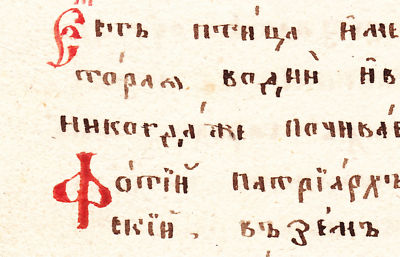 Єсть пти́ца и҆ме
то́раѧ воднѝ и҆в
никогда́же почива́е
Фо́тїй патрїа́рхъ
екїй. въ зе́мъ